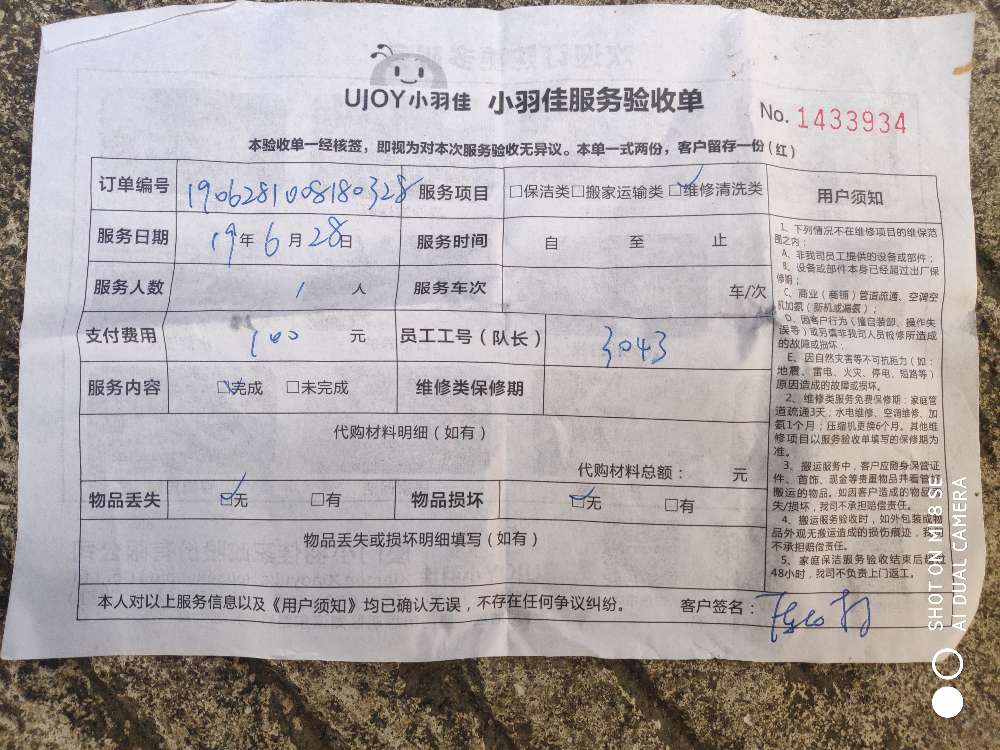 UJOY小羽佳 小羽佳服务验收单
No. 1433934
本验收单一经核签，即视为对本次服务验收无异议。本单一式两份，客户留存一份（红）
订单编号 190628100818032８ 服务项目 □保洁类□搬家运输类□维修清洗类
服务日期 19年6月28日 服务时间 自 至 止
服务人数 1 人 服务车次 车/次
支付费用 100 元 员工工号（队长） 3043
服务内容 □完成 □未完成 维修类保修期
代购材料明细（如有）
代购材料总额： 元
物品丢失 □无 □有 物品损坏 □无 □有
物品丢失或损坏明细填写（如有）
本人对以上服务信息以及《用户须知》均已确认无误，不存在任何争议纠纷。 客户签名：
用户须知
1、下列情况不在维修项目的维保范
围之内：
A、非我司员工提供的设备或部件；
B、设备或部件本身已经超过出厂保
修期；
C、商业（商铺）管道疏通、空调空
机加氨（新机或漏氨）；
D、因客户行为（擅自装卸、操作失
误等）或另请非我司人员检修所造成
的故障或损坏；
E、因自然灾害等不可抗拒力（如：
地震、雷电、火灾、停电、短路等）
原因造成的故障或损坏。
2、维修类服务免费保修期：家庭管
道疏通3天；水电维修、空调维修、加
氨1个月；压缩机更换6个月。其他维
修项目以服务验收单填写的保修期为
准。
3、搬运服务中，客户应随身保管证
件、首饰、现金等贵重物品并看管
搬运的物品。如因客户造成的物品
失/损坏，我司不承担赔偿责任。
4、搬运服务验收时，如外包装或物
品外观无搬运造成的损伤痕迹，我
不承担赔偿责任。
5、家庭保洁服务验收结束后超过
48小时，我司不负责上门返工。
SHOT ON MI 8 SE
AI DUAL CAMERA